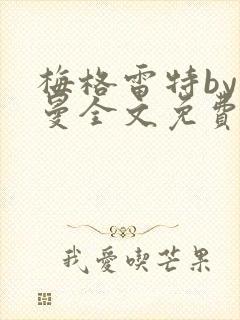 梅格雷特by
曼全文免費
我愛喫芒果